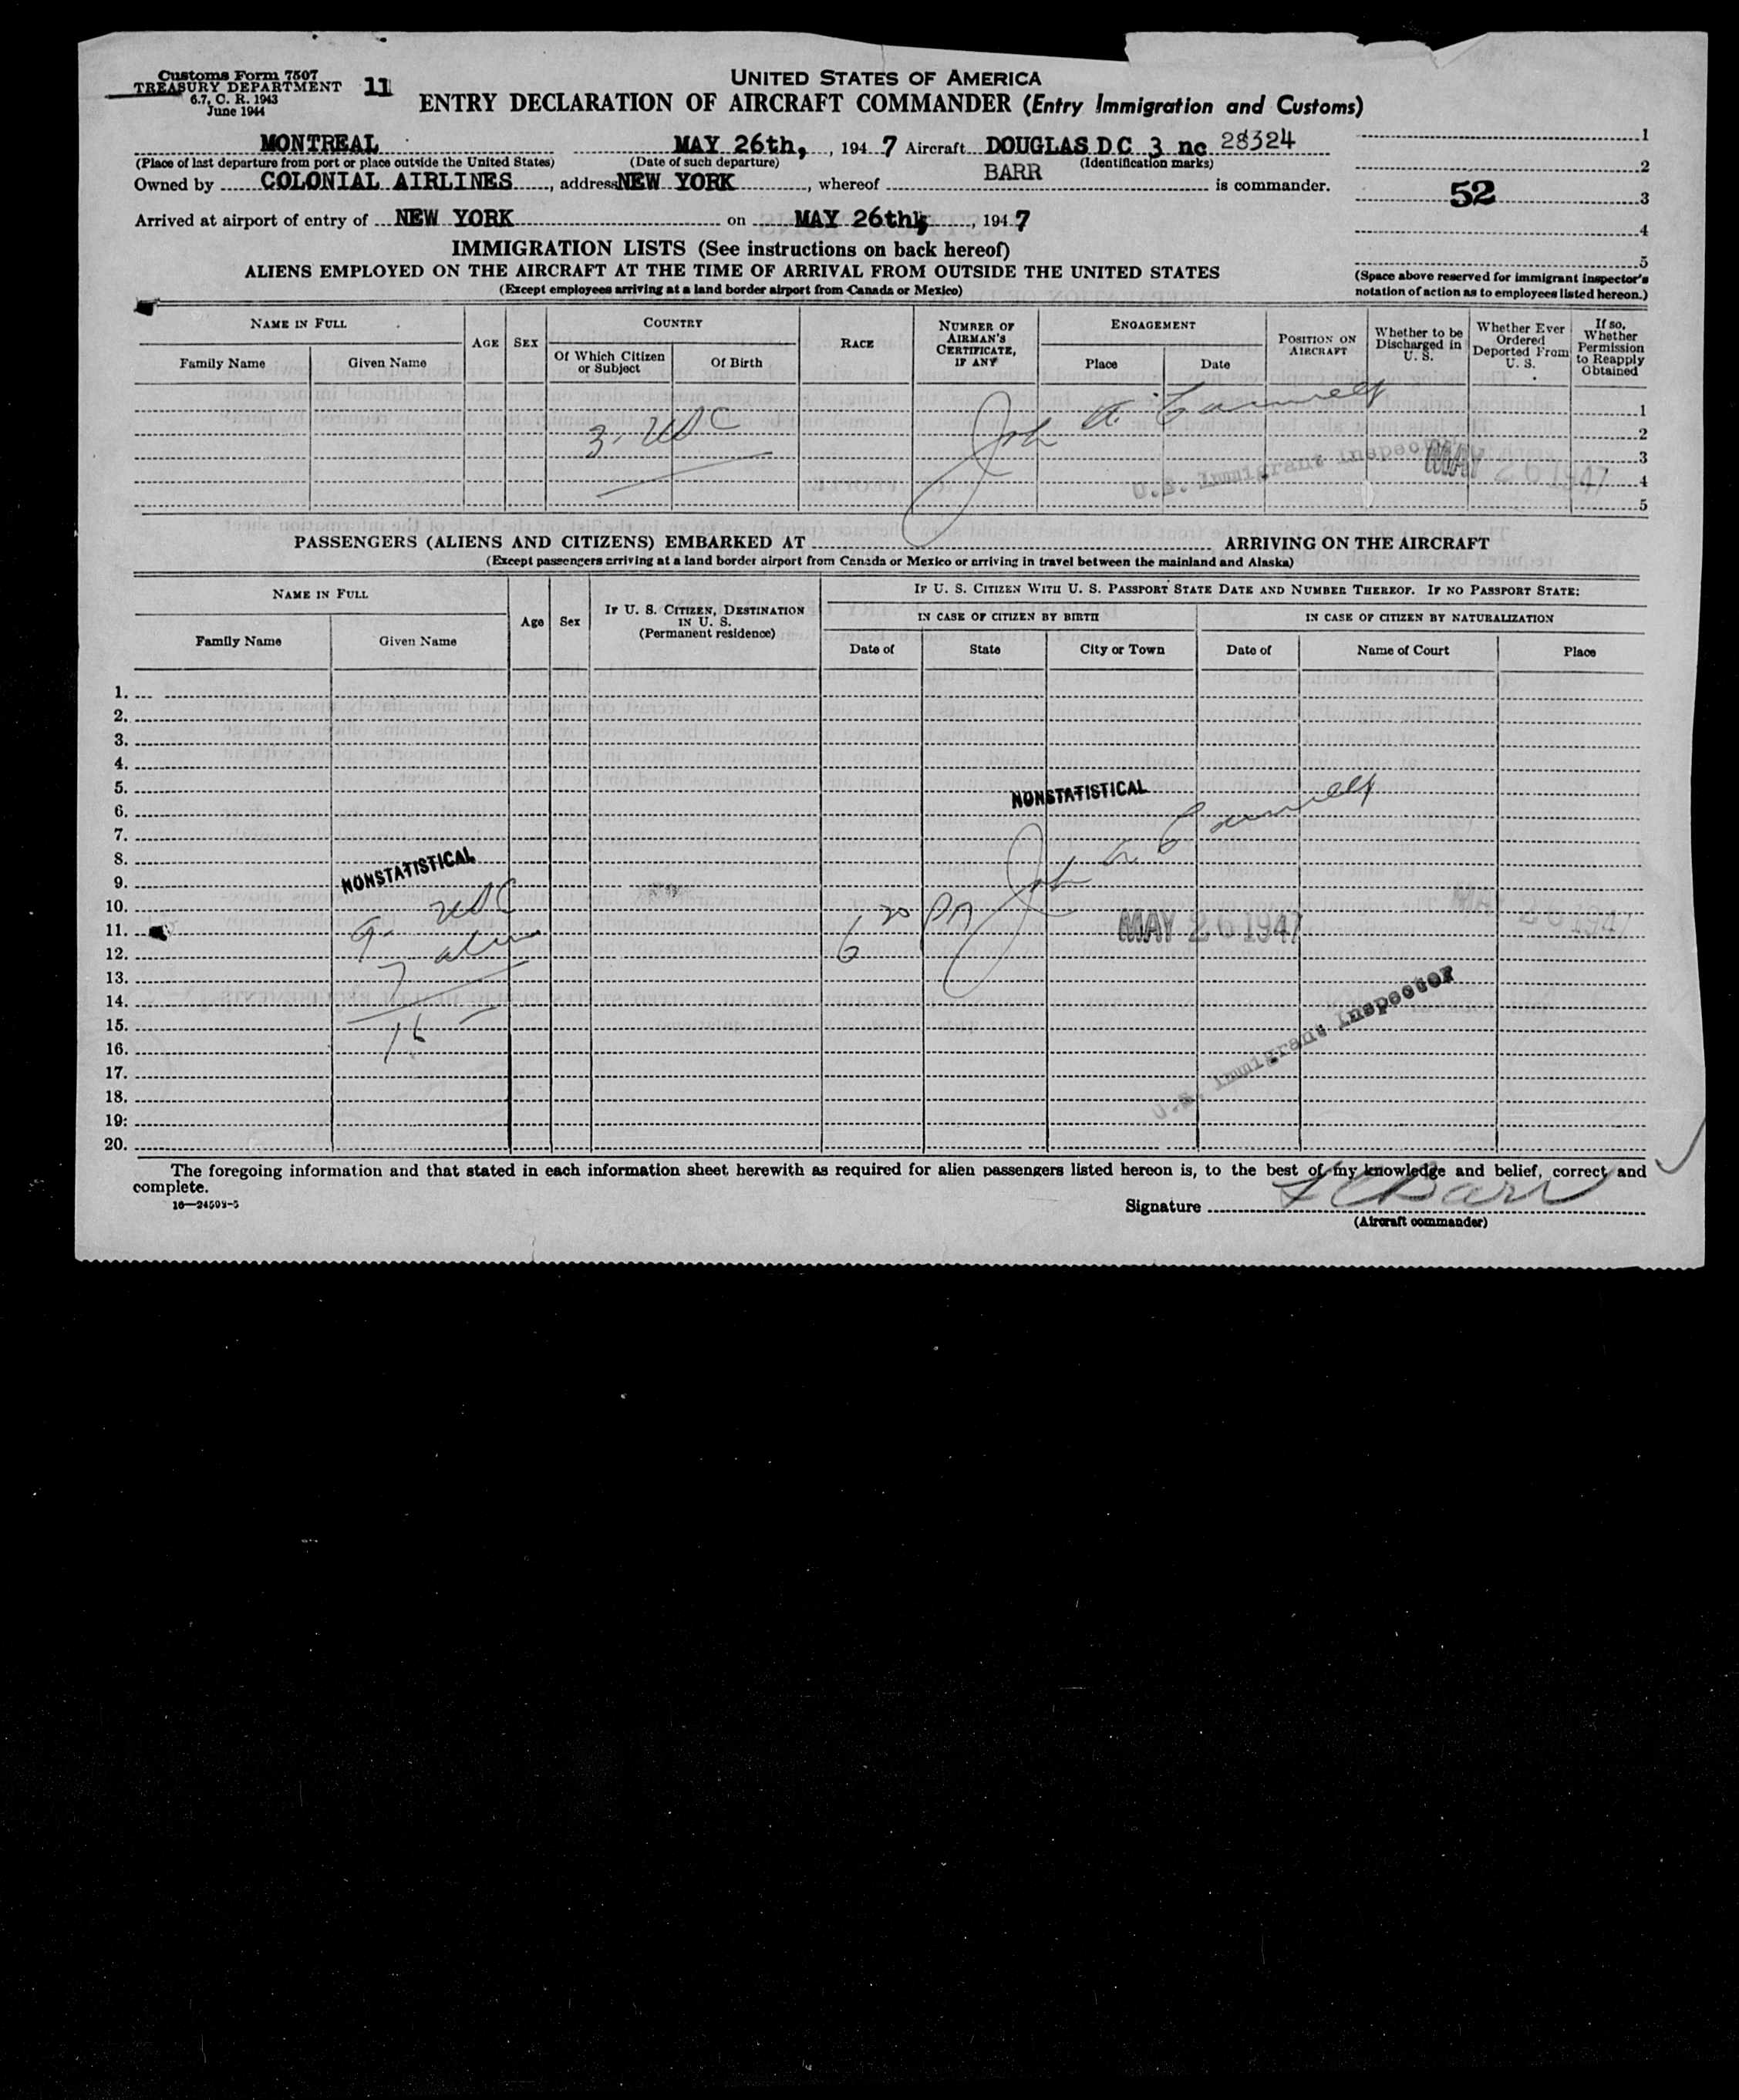 Customs Form 7507
TREASURY DEPARTMENT
6.7, C. R. 1943
June 1944
11
UNITED STATES OF AMERICA
ENTRY DECLARATION OF AIRCRAFT COMMANDER (Entry Immigration and Customs)
MONTREAL MAY 26th, , 194 7 Aircraft DOUGLAS D C 3 nc 28324
(Place of last departure from port or place outside the United States) (Date of such departure) (Identification marks)
Owned by COLONIAL AIRLINES, address NEW YORK, whereof BARR is commander.
Arrived at airport of entry of NEW YORK on MAY 26th, 194 7
1
2
52 3
4
5
(Space above reserved for immigrant inspector's
notation of action as to employees listed hereon.)
IMMIGRATION LISTS (See instructions on back hereof)
ALIENS EMPLOYED ON THE AIRCRAFT AT THE TIME OF ARRIVAL FROM OUTSIDE THE UNITED STATES
(Except employees arriving at a land border airport from Canada or Mexico)
NAME IN FULL
Family Name Given Name
AGE SEX
COUNTRY
Of Which Citizen or Subject Of Birth
RACE
NUMBER OF AIRMAN'S CERTIFICATE, IF ANY
ENGAGEMENT
Place Date
POSITION ON AIRCRAFT
Whether to be Discharged in U. S.
Whether Ever Ordered Deported From U. S.
If so, Whether Permission to Reapply Obtained
1
2
3
4
5
3. USC
John A.
U.S. Immigrant Inspector
MAY 26 1947
PASSENGERS (ALIENS AND CITIZENS) EMBARKED AT ARRIVING ON THE AIRCRAFT
(Except passengers arriving at a land border airport from Canada or Mexico or arriving in travel between the mainland and Alaska)
NAME IN FULL
Family Name Given Name
Age Sex
IF U. S. CITIZEN, DESTINATION IN U. S.
(Permanent residence)
IF U. S. CITIZEN WITH U. S. PASSPORT STATE DATE AND NUMBER THEREOF. IF NO PASSPORT STATE:
IN CASE OF CITIZEN BY BIRTH IN CASE OF CITIZEN BY NATURALIZATION
Date of State City or Town Date of Name of Court Place
1.
2.
3.
4.
5.
6.
7.
8.
9.
10.
11.
12.
13.
14.
15.
16.
17.
18.
19:
20.
NONSTATISTICAL
NONSTATISTICAL
9- USC
7 alien
16
6 20 PM
John A.
MAY 26 1947
MAY 26 1947
U.S. Immigrant Inspector
The foregoing information and that stated in each information sheet herewith as required for alien passengers listed hereon is, to the best of my knowledge and belief, correct and
complete.
16—24509-5
Signature Barr
(Aircraft commander)